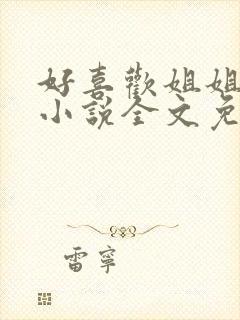 好喜歡姐姐
小說全文免
雷寧